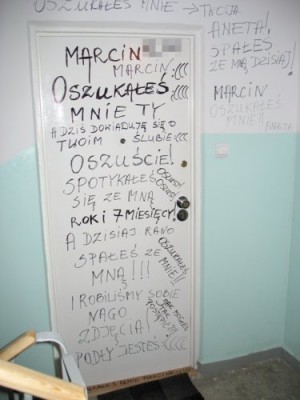 OSZUKAŁEŚ MNIE → TWOJA
ANETA!
SPAŁEŚ
ZE MNĄ DZISIAJ!
MARCIN
OSZUKAŁEŚ
MNIE!!
ANETA
MARCIN
MARCIN :(((
OSZUKAŁEŚ
MNIE TY
A DZIS DOWIADUJĘ SIĘ O
TWOIM ŚLUBIE :(((
OSZUŚCIE!
SPOTYKAŁEŚ
SIĘ ZE MNĄ
OSZUST
OSZUST
ROK I 7 MIESIĘCY
A DZISIAJ RANO
SPAŁEŚ ZE
MNĄ!!!
OSZUKAŁEŚ
MNIE!!
I ROBILIŚMY SOBIE
NAGO
ZDJĘCIA!
JAK MOGŁEŚ
TAK
POSTĄPIĆ!!!
PODŁY JESTEŚ :(((